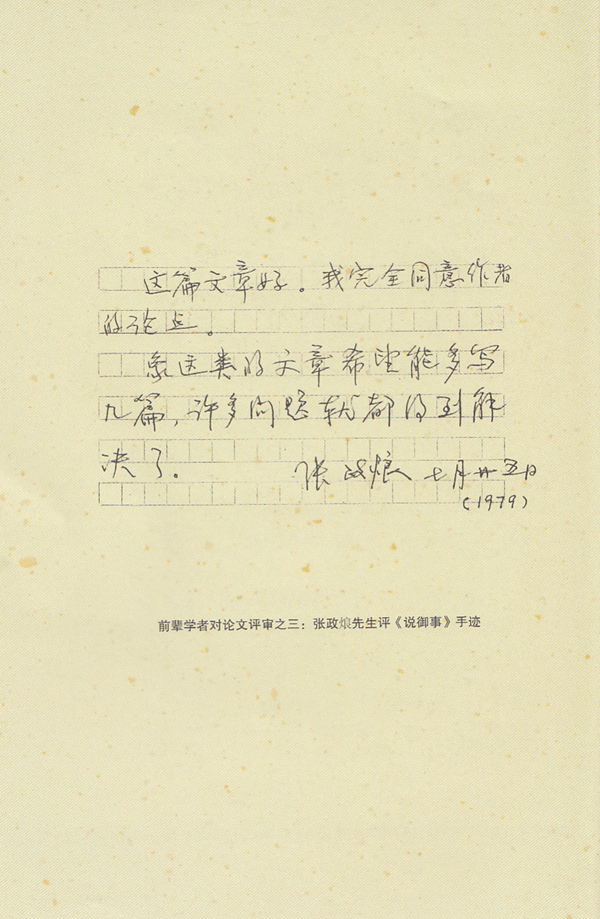 这篇文章好。我完全同意作者
的论点。
象这类的文章希望能多写
几篇，许多问题就都得到解
决了。 张政烺 七月廿五日
(1979)
前辈学者对论文评审之三：张政烺先生评《说御事》手迹